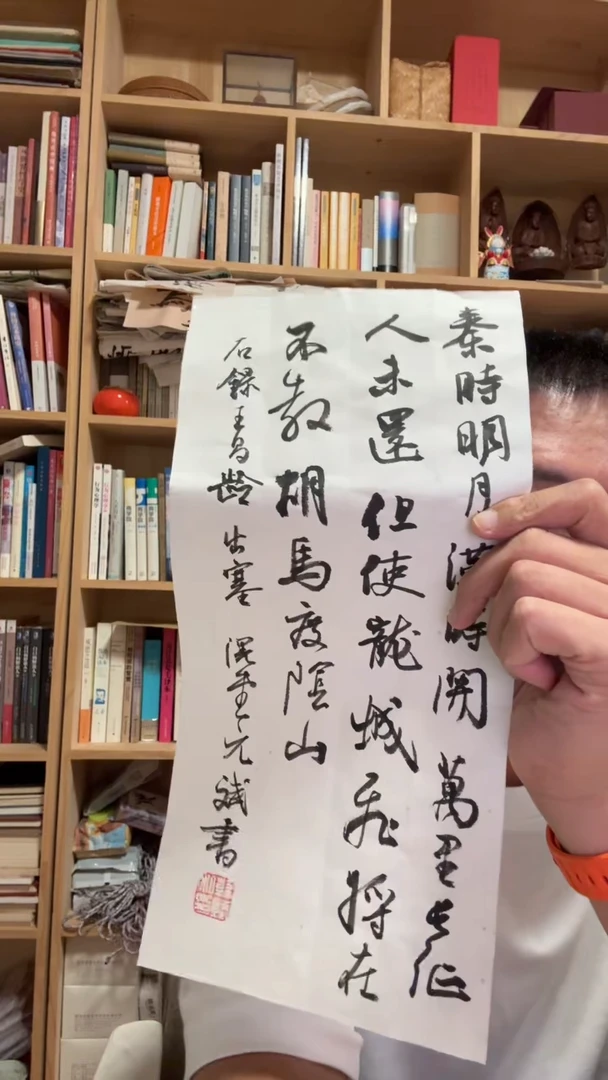 秦時明月漢時関萬里长征
人未還但使龍城飛將在
不教胡馬度陰山
右錄王昌齡出塞 斌書